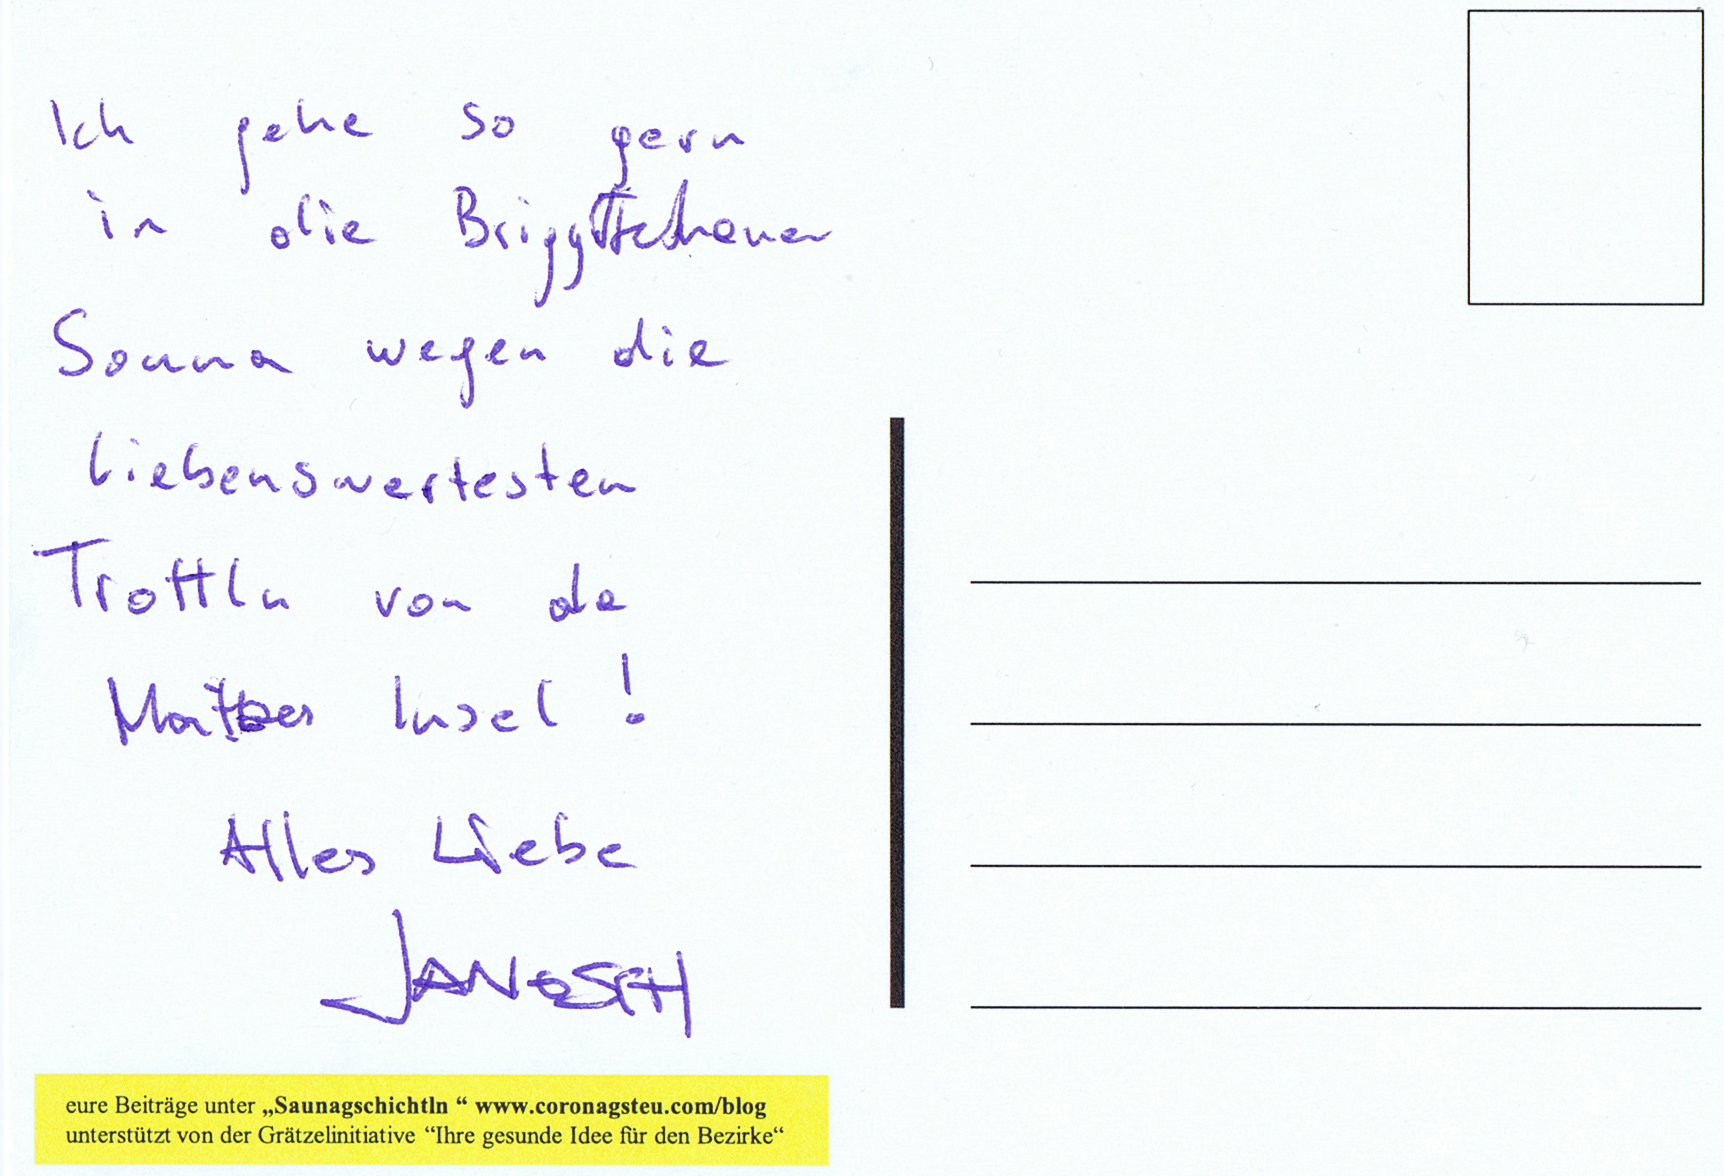 Ich gehe so gern
in die
Sauna wegen die
liebenswertesten
Trottln von da
Insel!
Alles Liebe
JANOSCH
eure Beiträge unter „Saunagschichtln “ www.coronagsteu.com/blog
unterstützt von der Grätzelinitiative “Ihre gesunde Idee für den Bezirke“